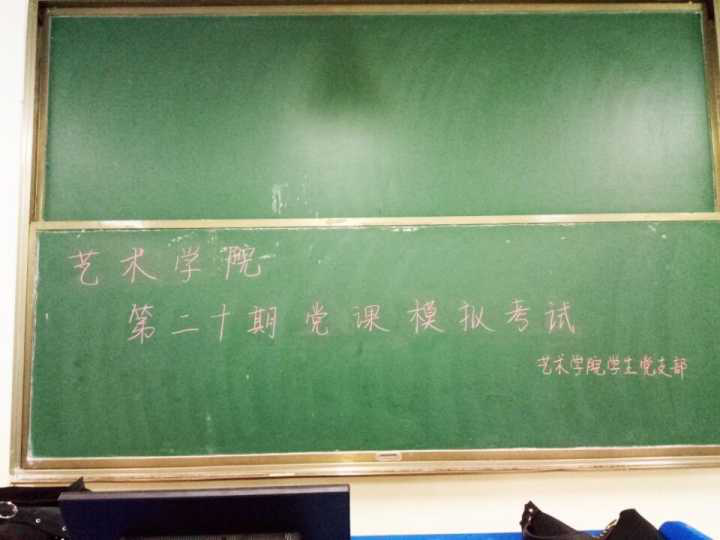 艺术学院
第二十期党课模拟考试
艺术学院学生党支部